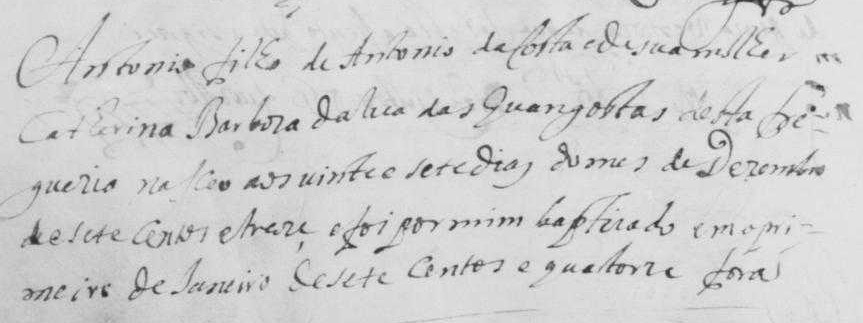 Antonio filho de Antonio da Costa e de sua mulher
Catherina Barboza da Rua das Quangostas desta fre-
guezia nasceo aos vinte e sete dias do mes de Dezembro
de sete centos e treze, e foi por mim baptizado em o pri-
meiro de Janeiro de sete centos e quatorze forã